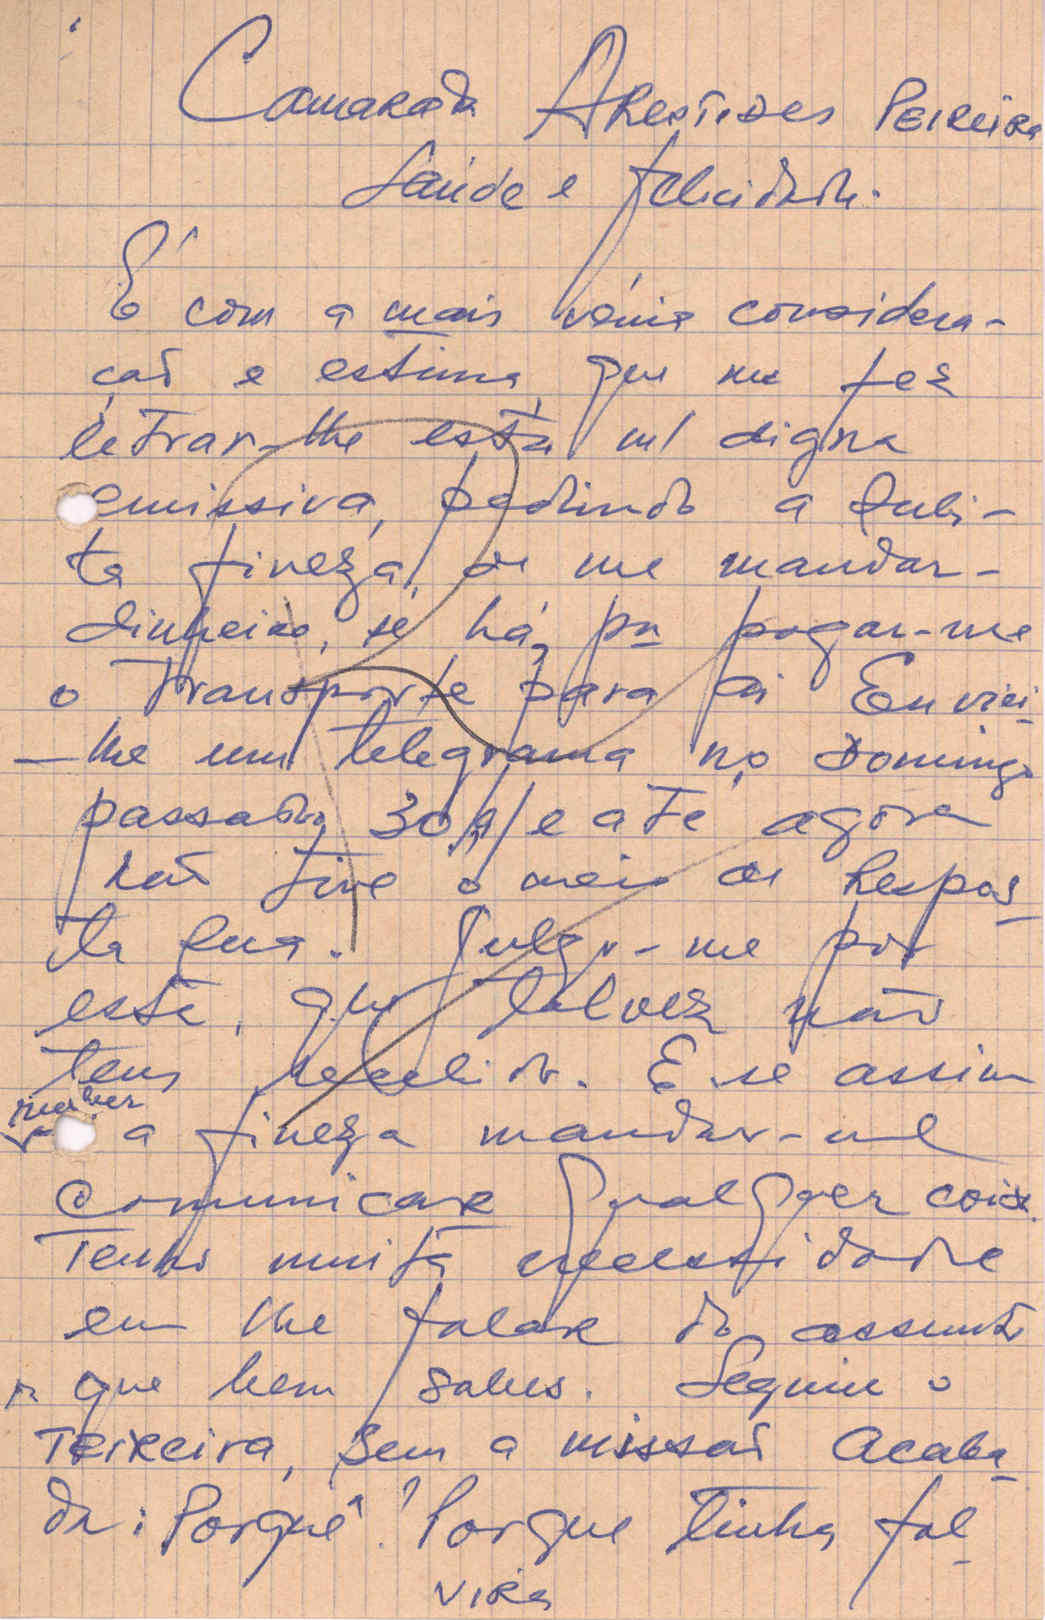 Camarada Arestides Pereira
Saúde e felicidade.
É com a mais vénia considera-
çaõ e estima, que me fez
letrar-lhe esta m/ digna
emissiva, pedindo a subi-
ta fineza, de me mandar-
dinheiro, se há, pa pagar-me
o Transporte para aí Enviei-
-lhe um telegrama no Domingo
passado, 30/9/ e até agora
naõ tive o meio de Respos-
ta sua. Julgo-me por
esta, que talvez naõ
tens recebido. E se assim
a fineza mandar-me
comunicar qualquer coisa.
Tenho muita necessidade
em lhe falar do assunto
que bem sabes. Seguiu o
Teixeira, sem a missaõ acaba-
da: Porquê? Porque tinha fal-
vira